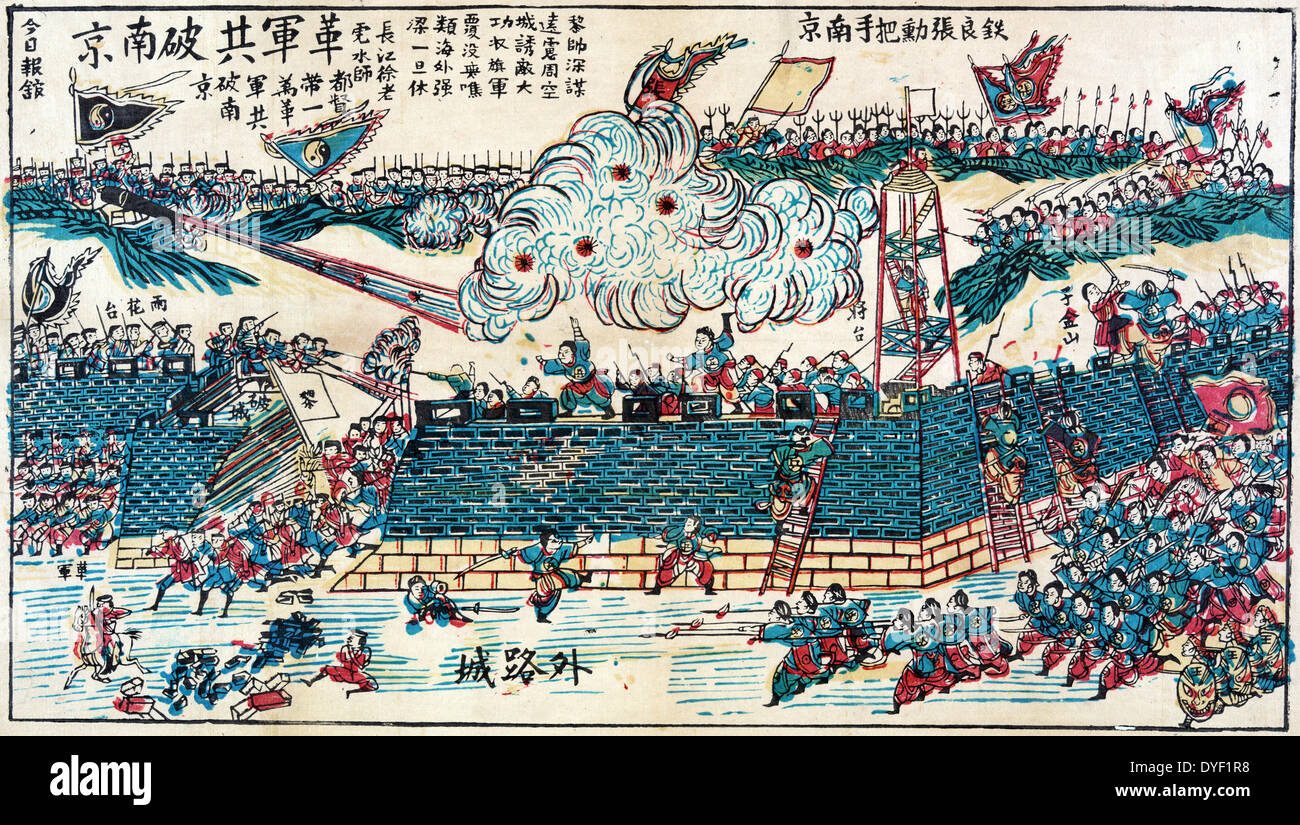 鉄良張勳把手南京
黎帥深謀
遠震周空
城誘敵大
功衣旗軍
覆没喪噍
類海外强
梁一旦休
長江徐老
虎水師
都督
帶一
萬革
軍共
破南
京
革軍共破南京
今日報舘
張
将台
子金山
雨花台
破城
黎
革軍
外路城
alamy
alamy stock photo
DYF1R8
www.alamy.com